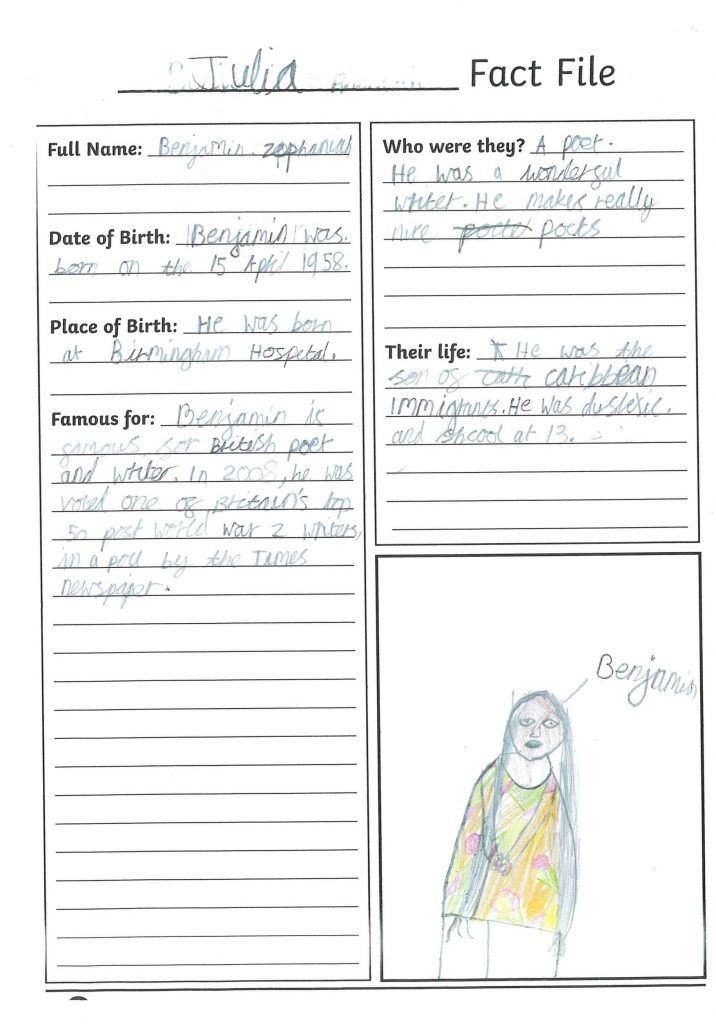 Julia Fact File
Full Name: Benjamin zephaniah
Date of Birth: Benjamin was
born on the 15 April 1958.
Place of Birth: He was born
at Birmingham Hospital.
Famous for: Benjamin is
famous for British poet
and writer. In 2008, he was
voted one of Britain's top
50 post world war 2 writers,
in a poll by the Times
newspaper.
Who were they? A poet.
He was a wonderful
writer. He makes really
nice poets
Their life: He was the
son of caribbean
immigrants. He was duslexic.
and shcool at 13.
Benjamin